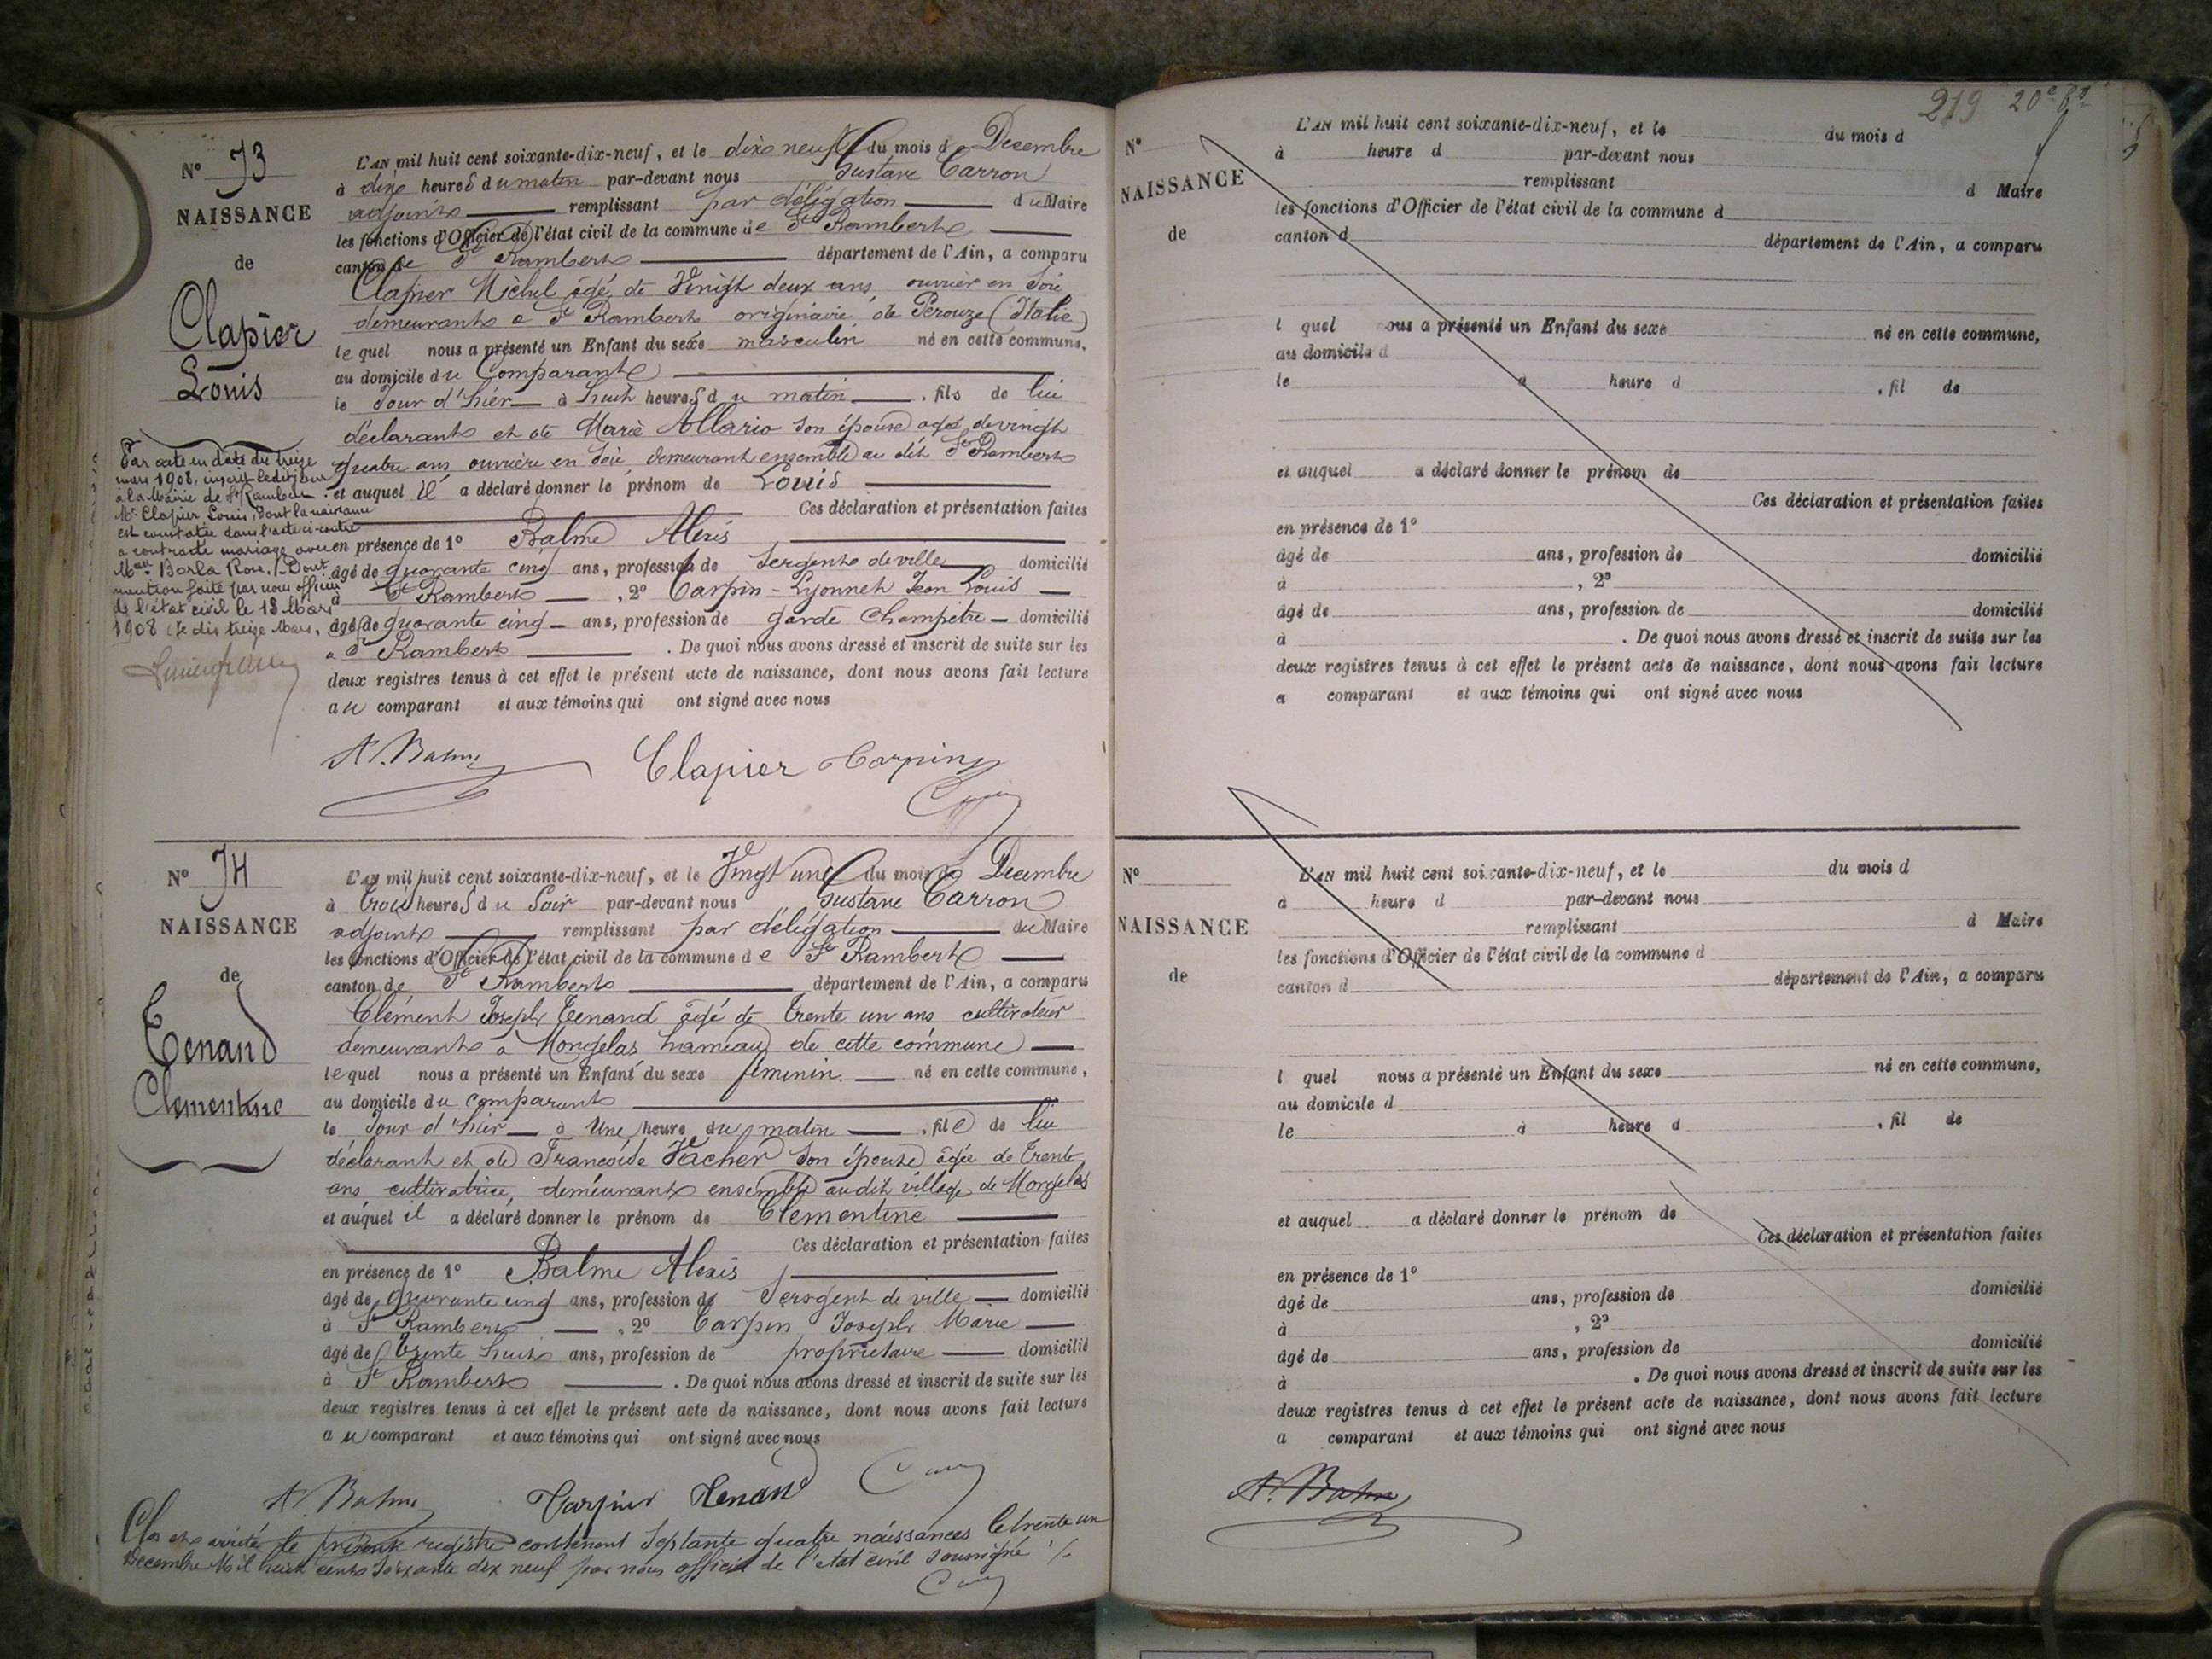 N° 73
NAISSANCE
de
Clapier
Louis
L'AN mil huit cent soixante-dix-neuf, et le dix neuf du mois d Decembre
à dix heures du matin par-devant nous Gustave Carron
adjoint remplissant par délégation du Maire
les fonctions d'Officier de l'état civil de la commune de St Rambert
canton de St Rambert département de l'Ain, a comparu
Clapier Michel âgé de Vingt deux ans, ouvrier en Soie
demeurant a St Rambert originaire de Pérouze (Italie)
le quel nous a présenté un Enfant du sexe masculin né en cette commune,
au domicile du Comparant
le Jour d'hier à huit heures du matin, fils de lui
déclarant et de Marie Allario son épouse agé de vingt
quatre ans ouvrière en Soie demeurant ensemble au dit St Rambert
et auquel il a déclaré donner le prénom de Louis
Ces déclaration et présentation faites
en présence de 1° Balme Alexis
âgé de quarante cinq ans, profession de Sergent de ville domicilié
à St Rambert, 2° Carpin-Lyonnet Jean Louis
âgé de quarante cinq ans, profession de garde Champêtre domicilié
a St Rambert. De quoi nous avons dressé et inscrit de suite sur les
deux registres tenus à cet effet le présent acte de naissance, dont nous avons fait lecture
au comparant et aux témoins qui ont signé avec nous
Par acte en date du treize
mars 1908, inscrit ledit jour
à la Mairie de St Rambert
Mr Clapier Louis, dont la naissance
est constatée dans l'acte ci-contre
a contracté mariage avec
Melle Borla Rose. Dont
mention faite par nous officier
de l'état civil le 13 Mars
1908 Je dis treize Mars.
A. Balme Clapier Carpin
N° 74
NAISSANCE
de
Tenand
Clementine
L'AN mil huit cent soixante-dix-neuf, et le Vingt une du mois de Decembre
à trois heures du Soir par-devant nous Gustave Carron
adjoint remplissant par délégation du Maire
les fonctions d'Officier de l'état civil de la commune de St Rambert
canton de St Rambert département de l'Ain, a comparu
Clément Joseph Tenand âgé de trente un ans cultivateur
demeurant a Mongelas hameau de cette commune
le quel nous a présenté un Enfant du sexe féminin né en cette commune,
au domicile du comparant
le Jour d'hier à Une heure du matin, file de lui
déclarant et de Francoise Vacher son épouse âgée de trente
ans cultivatrice, demeurant ensemble audit village de Mongelas
et auquel il a déclaré donner le prénom de Clementine
Ces déclaration et présentation faites
en présence de 1° Balme Alexis
âgé de quarante cinq ans, profession de Sergent de ville domicilié
à St Rambert, 2° Carpin Joseph Marie
âgé de trente huit ans, profession de propriétaire domicilié
à St Rambert. De quoi nous avons dressé et inscrit de suite sur les
deux registres tenus à cet effet le présent acte de naissance, dont nous avons fait lecture
au comparant et aux témoins qui ont signé avec nous
A. Balme Carpin Tenand
Clos et arrêté le présent registre contenant Septante quatre naissances le trente un
Decembre Mil huit cent Soixante dix neuf par nous officier de l'état civil soussigné
219 20e
N°
NAISSANCE
de
L'AN mil huit cent soixante-dix-neuf, et le du mois d
à heure d par-devant nous
remplissant d Maire
les fonctions d'Officier de l'état civil de la commune d
canton d département de l'Ain, a comparu
l quel nous a présenté un Enfant du sexe né en cette commune,
au domicile d
le à heure d, fil de
et auquel a déclaré donner le prénom de
Ces déclaration et présentation faites
en présence de 1°
âgé de ans, profession de domicilié
à, 2°
âgé de ans, profession de domicilié
à. De quoi nous avons dressé et inscrit de suite sur les
deux registres tenus à cet effet le présent acte de naissance, dont nous avons fait lecture
a comparant et aux témoins qui ont signé avec nous
N°
NAISSANCE
de
L'AN mil huit cent soixante-dix-neuf, et le du mois d
à heure d par-devant nous
remplissant d Maire
les fonctions d'Officier de l'état civil de la commune d
canton d département de l'Ain, a comparu
l quel nous a présenté un Enfant du sexe né en cette commune,
au domicile d
le à heure d, fil de
et auquel a déclaré donner le prénom de
Ces déclaration et présentation faites
en présence de 1°
âgé de ans, profession de domicilié
à, 2°
âgé de ans, profession de domicilié
à. De quoi nous avons dressé et inscrit de suite sur les
deux registres tenus à cet effet le présent acte de naissance, dont nous avons fait lecture
a comparant et aux témoins qui ont signé avec nous
A. Balme